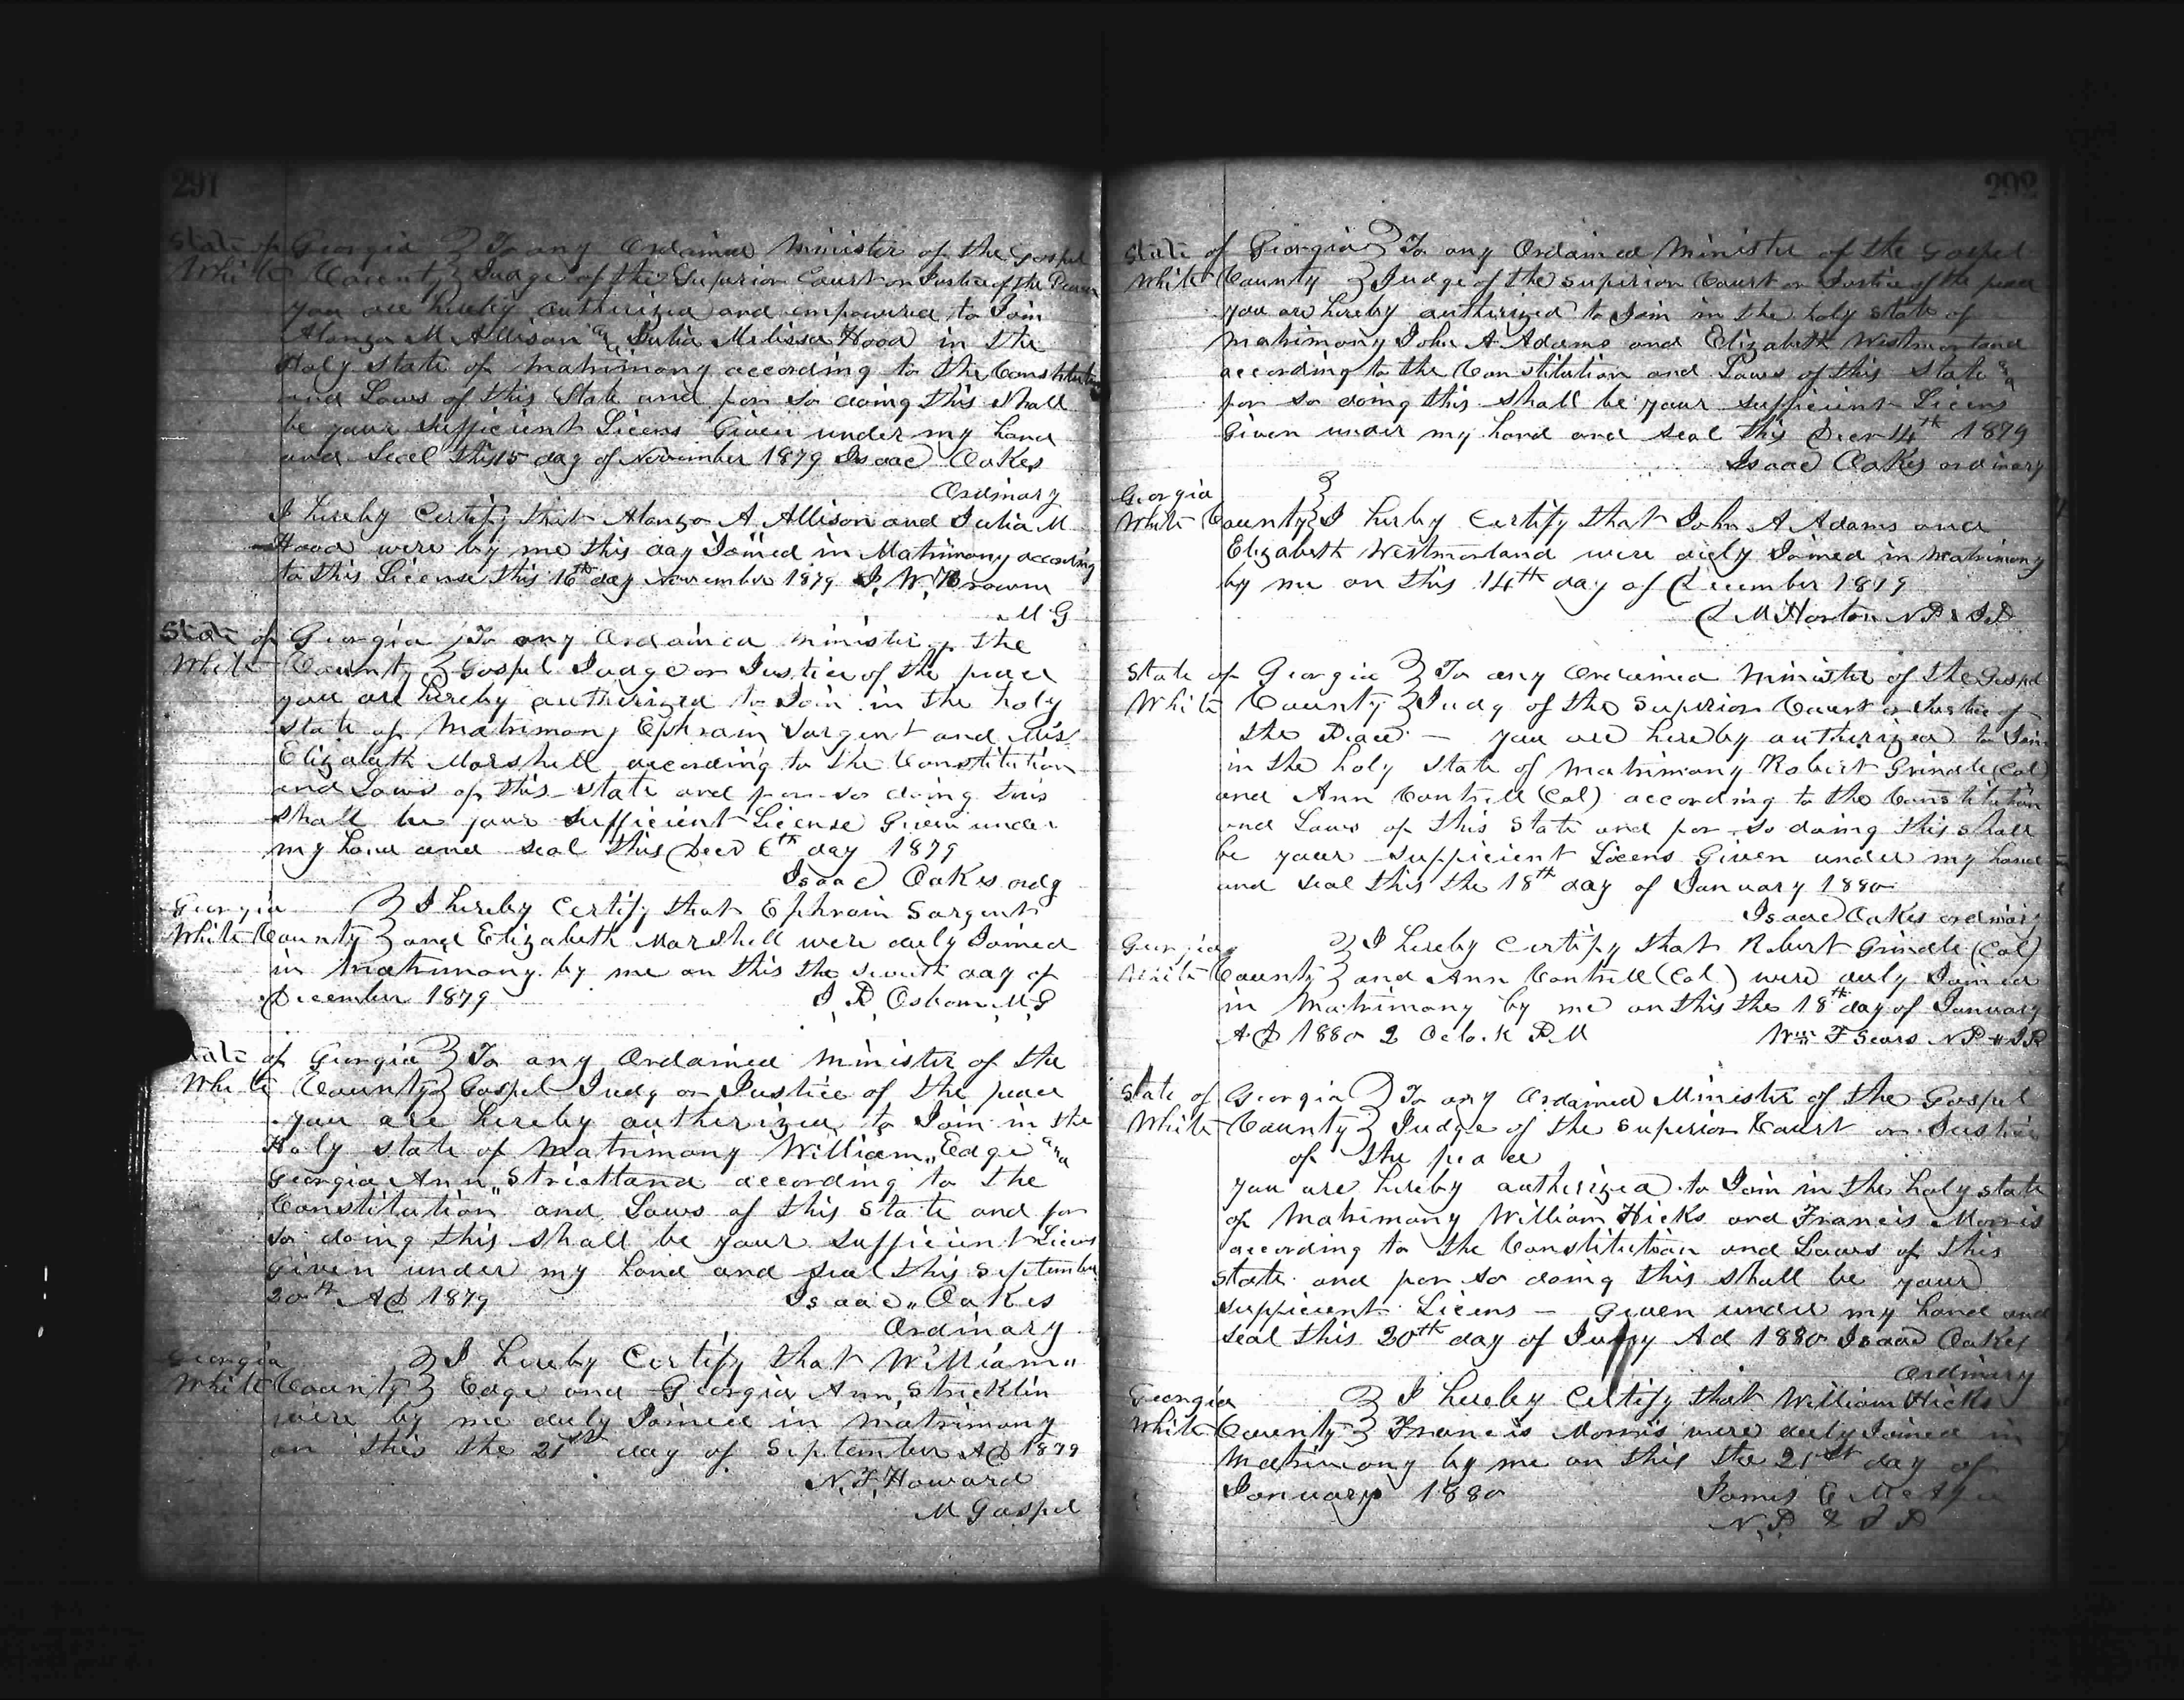 291
State of Georgia } To any Ordained Minister of the Gospel
White County } Judge of the Superior Court or Justice of the Peace
you are hereby authorized and empowered to Join
Alonzo M Allison and Julia Melissa Hood in the
Holy state of Matrimony according to the Constitution
and Laws of this State and for so doing this shall
be your sufficient Licens Given under my hand
and Seal this 15 day of November 1879 Isaac Oakes
Ordinary
I hereby Certify that Alonzo A. Allison and Julia M
Hood were by me this day Joined in Matrimony according
to this License this 16th day November 1879 J. W. Brown
M G
State of Georgia } To any Ordained minister of the
White County } Gospel Judge or Justice of the peace
you are hereby authorized to Join in the holy
state of Matrimony Ephraim Sargent and Mis
Elizabeth Marshell according to the Constitution
and Laws of this state and for so doing this
shall be your sufficient License Given under
my hand and seal this Decr 6th day 1879
Isaac Oakes ordy
Georgia } I hereby Certify that Ephraim Sargent
White County } and Elizabeth Marshell were duly Joined
in Matrimony by me on this the seventh day of
December 1879 J. R. Osborn M G
State of Georgia } To any Ordained Minister of the
White County } Gospel Judg or Justice of the peace
you are hereby authorized to Join in the
Holy state of Matrimony William,, Edge and
Georgia Ann,, Strictland according to the
Constitution and Laws of this State and for
so doing this shall be your sufficient Licens
given under my hand and seal this September
20th AD 1879 Isaac,, Oakes
Ordinary
Georgia } I hereby Certify that William,,
White County } Edge and Georgia Ann Stricklin
were by me duly Joined in Matrimony
on this the 21st day of September AD 1879
N. F. Howard
M Gospel
292
State of Georgia } To any Ordained Minister of the Gospel
White County } Judge of the Superior Court or Justice of the peace
you are hereby authirized to Join in the holy state of
Matrimony John A Adams and Elizabeth Westmorland
according to the Constitution and Laws of this State and
for so doing this shall be your sufficient Licens
Given under my hand and seal this Decr 14th 1879
Isaac Oakes ordinary
Georgia }
White County } I herby Certify that John A Adams and
Elizabeth Westmorland were duly Joined in Matrimony
by me on this 14th day of December 1879
M Horton N P & J P
State of Georgia } To any Ordained Minister of the Gospel
White County } Judg of the Superior Court or Justice of
the Peace — you are hereby authorized to Join
in the holy state of Matrimony Robert Grindle (Col)
and Ann Contrell (Col) according to the Constitution
and Laws of this State and for so doing this shall
be your sufficient Licens Given under my hand
and seal this the 18th day of January 1880
Isaac Oakes ordinary
Georgia } I hereby Certify that Robert Grindle (Col)
White County } and Ann Contrell (Col) were duly Joined
in Matrimony by me on this the 18th day of January
AD 1880 2 Oclo.k P M Wm F Sears N P & J P
State of Georgia } To any Ordained Minister of the Gospel
White County } Judge of the Superior Court or Justice
of the peace
you are hereby authorized to Join in the holy state
of Matrimony William Hicks and Francis Morris
according to the Constitution and Laws of this
state and for so doing this shall be your
sufficient Licens — given under my hand and
seal this 20th day of Ad 1880 Isaac Oakes
Ordinary
Georgia } I hereby Certify that William Hicks
White County } Francis Morris were duly Joined in
Matrimony by me on this the 21st day of
January 1880 James
N. P & J P